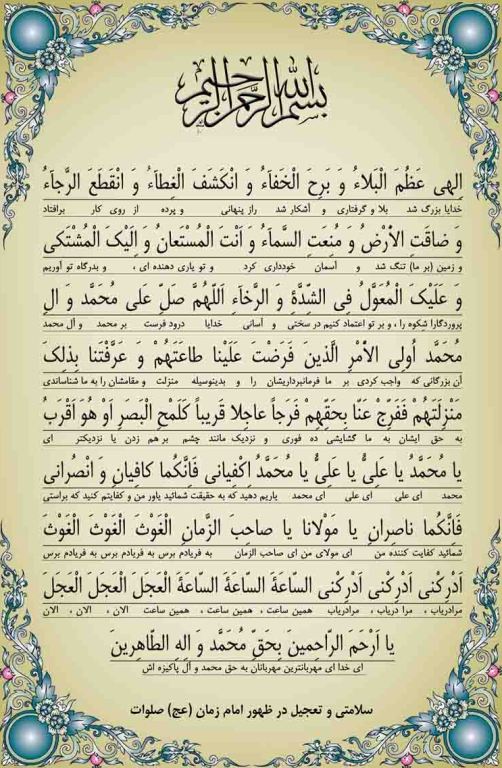 بسم الله الرحمن الرحیم
اِلهی عَظُمَ الْبَلاءُ وَ بَرِحَ الْخَفاءُ وَ انْکَشَفَ الْغِطاءُ وَ انْقَطَعَ الرَّجاءُ
خدایا بزرگ شد بلا و گرفتاری و آشکار شد راز پنهانی و پرده از روی کار برافتاد
وَ ضاقَتِ الاَْرْضُ وَ مُنِعَتِ السَّماءُ وَ اَنْتَ الْمُسْتَعانُ وَ اِلَیْکَ الْمُشْتَکی
و زمین (بر ما) تنگ شد و آسمان خودداری کرد و تو یاری دهنده ای ، و بدرگاه تو آوریم
وَ عَلَیْکَ الْمُعَوَّلُ فِی الشِّدَّةِ وَ الرَّخاءِ اَللّهُمَّ صَلِّ عَلی مُحَمَّد وَ الِ
پروردگارا شکوه را ، و بر تو اعتماد کنیم در سختی و آسانی خدایا درود فرست بر محمد و آل محمد
مُحَمَّد اُولِی الاَْمْرِ الَّذینَ فَرَضْتَ عَلَیْنا طاعَتَهُمْ وَ عَرَّفْتَنا بِذلِکَ
آن بزرگانی که واجب کردی بر ما فرمانبرداریشان را و بدینوسیله منزلت و مقامشان را به ما شناساندی
مَنْزِلَتَهُمْ فَفَرِّجْ عَنّا بِحَقِّهِمْ فَرَجاً عاجِلا قَریباً کَلَمْحِ الْبَصَرِ اَوْ هُوَ اَقْرَبُ
به حق ایشان به ما گشایشی ده فوری و نزدیک مانند چشم بر هم زدن یا نزدیکتر ای
یا مُحَمَّدُ یا عَلِیُّ یا عَلِیُّ یا مُحَمَّدُ اِکْفِیانی فَاِنَّکُما کافِیانِ وَ انْصُرانی
محمد ای علی ای علی ای محمد یاریم دهید که به حقیقت شمائید یاور من و کفایتم کنید که براستی
فَاِنَّکُما ناصِرانِ یا مَوْلانا یا صاحِبَ الزَّمانِ الْغَوْثَ الْغَوْثَ الْغَوْثَ
شمائید کفایت کننده من ای مولای من ای صاحب الزمان به فریادم برس به فریادم برس به فریادم برس
اَدْرِکْنی اَدْرِکْنی اَدْرِکْنی السّاعَةَ السّاعَةَ السّاعَةَ الْعَجَلَ الْعَجَلَ الْعَجَلَ
مرادریاب ، مرا دریاب ، مرادریاب همین ساعت ، همین ساعت ، همین ساعت الان ، الان ، الان
یا اَرْحَمَ الرّاحِمینَ بِحَقِّ مُحَمَّد وَ الِهِ الطّاهِرینَ
ای خدا ای مهربانترین مهربانان به حق محمد و آل پاکیزه اش
سلامتی و تعجیل در ظهور امام زمان (عج) صلوات